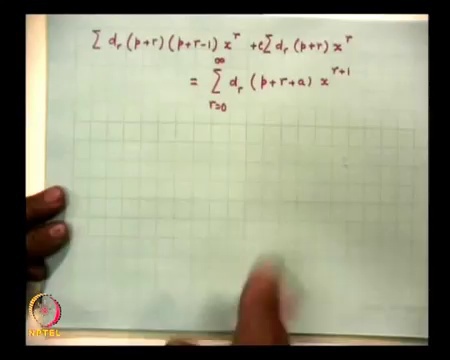 Σ dᵣ (p+r) (p+r-1) xʳ + c Σ dᵣ (p+r) xʳ
= Σ_{r=0}^{∞} dᵣ (p+r+a) xʳ⁺¹
NPTEL